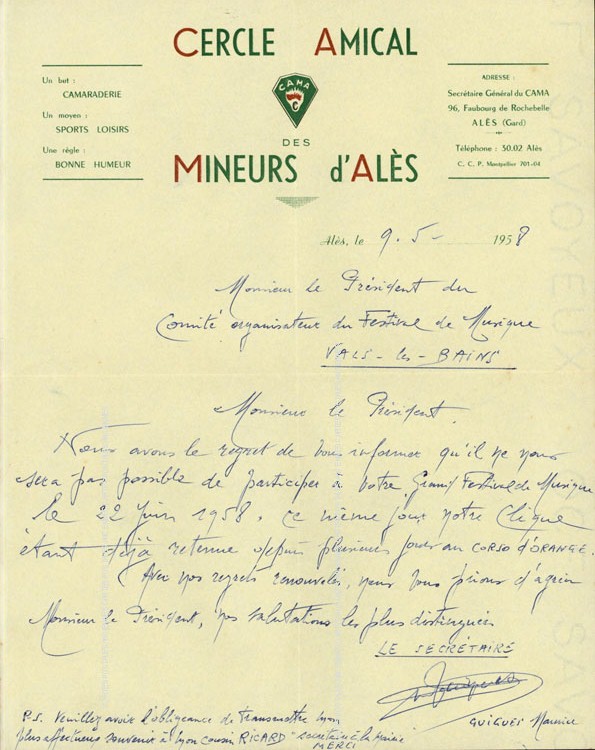 CERCLE AMICAL
DES
MINEURS d'ALÈS
CAMA
C
Un but :
CAMARADERIE
Un moyen :
SPORTS LOISIRS
Une règle :
BONNE HUMEUR
ADRESSE :
Secrétaire Général du CAMA
96, Faubourg de Rochebelle
ALÈS (Gard)
Téléphone : 30.02 Alès
C. C. P. Montpellier 701-04
Alès, le 9. 5- 1958
Monsieur le Président du
Comité organisateur du Festival de Musique
VALS-les-BAINS
Monsieur le Président.
Nous avons le regret de Vous informer qu'il ne nous
sera pas possible de participer à Votre Grand Festival de Musique
le 22 Juin 1958, ce même jour notre Clique
étant déjà retenue depuis plusieurs jours au CORSO d'ORANGE.
Avec nos regrets renouvelés, nous Vous prions d'agréer
Monsieur le Président, nos salutations les plus distinguées
LE SECRÉTAIRE
GUIGUES Maurice
P.S. Veuillez avoir l'obligeance de transmettre mon
plus affectueux souvenir à mon cousin RICARD secrétaire à la Mairie
MERCI
SAVOYEUX